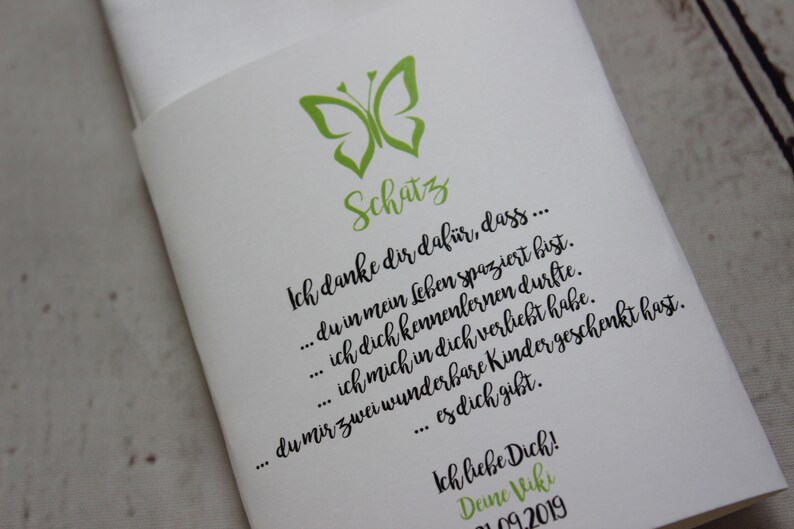 Schatz
Ich danke dir dafür, dass ...
... du in mein Leben spaziert bist.
... ich dich kennenlernen durfte.
... ich mich in dich verliebt habe.
... du mir zwei wunderbare Kinder geschenkt hast.
... es dich gibt.
Ich liebe Dich!
Deine Viki
.09.2019